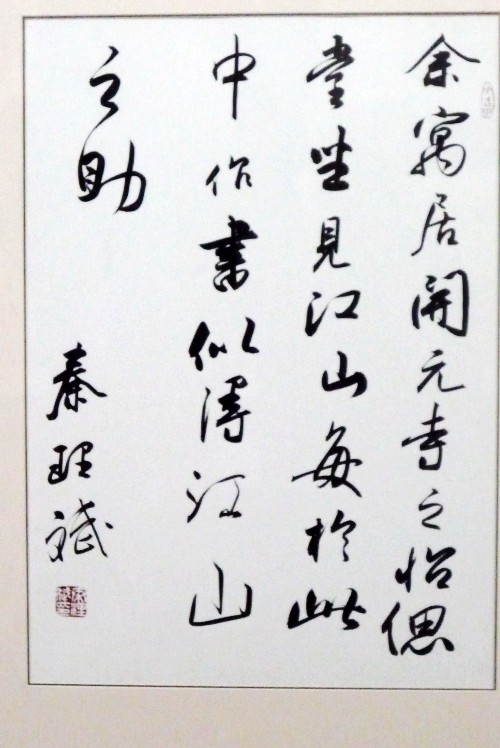 余寓居開元寺之怡偲
堂坐見江山每於此
中作書似得江山
之助
秦理斌